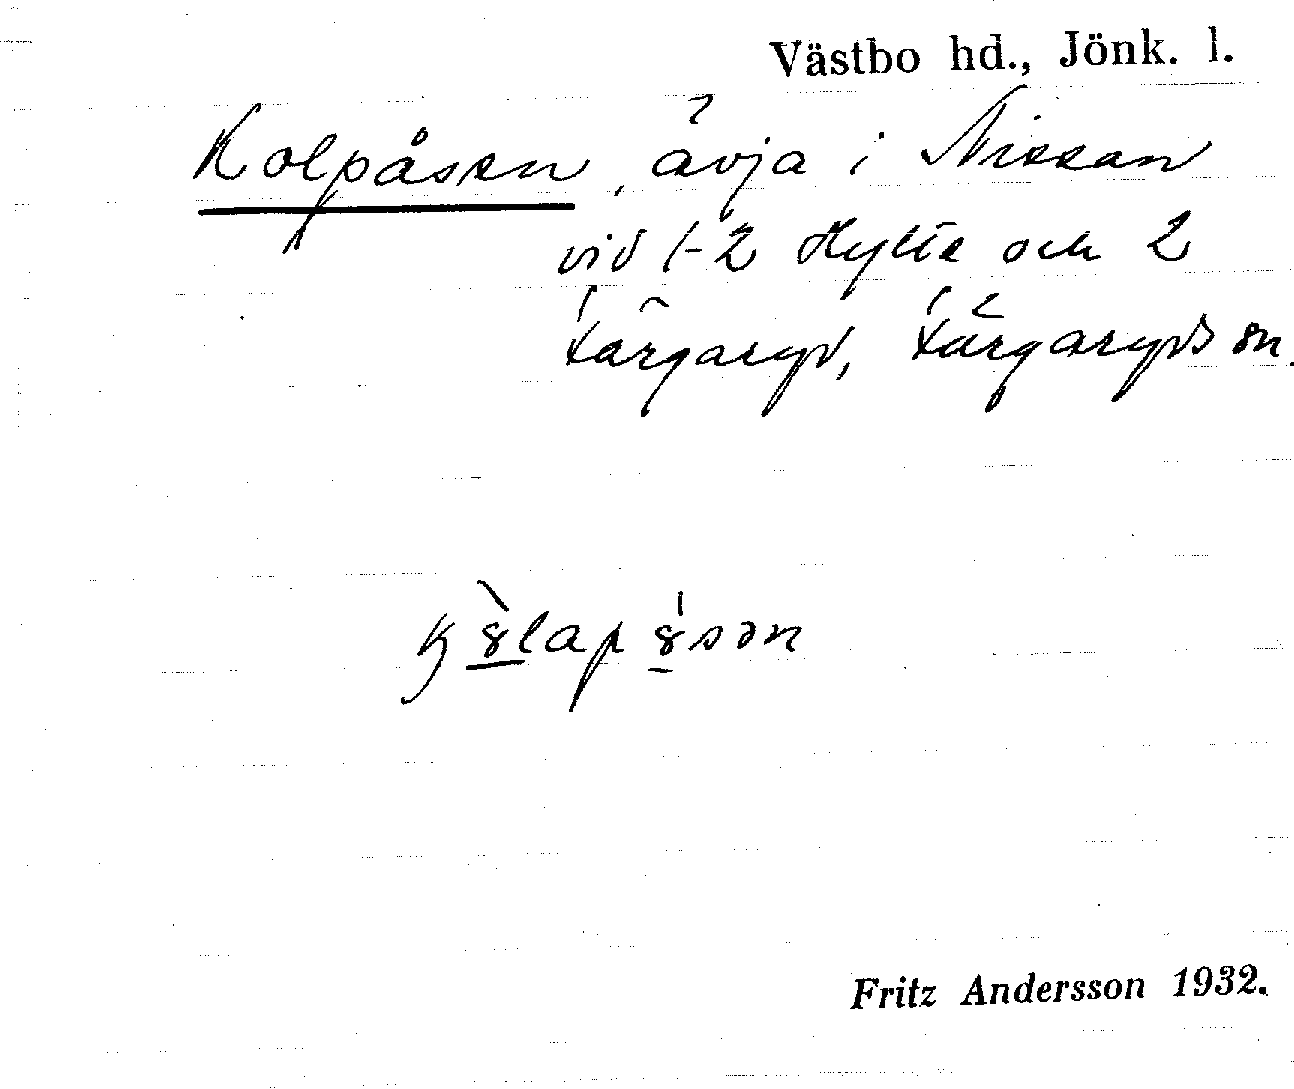 Västbo hd., Jönk. l.
Kolpåsen, ävja i Nissan
vid 1-2 Hylte och 2
Färgaryd, Färgaryds sn.
Fritz Andersson 1932.